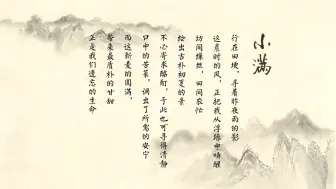 小满
行在田埂，寻着昨夜雨的影
这晨时的风，正把我从浮躁中唤醒
坊间缫丝，田间农忙
绘出古朴初夏的景
不必寄求酩酊，于此也可寻得清静
口中的苦菜，调出了所需的安宁
而这新麦的圆满，
最质朴的甘甜
正是我们遗忘的生命